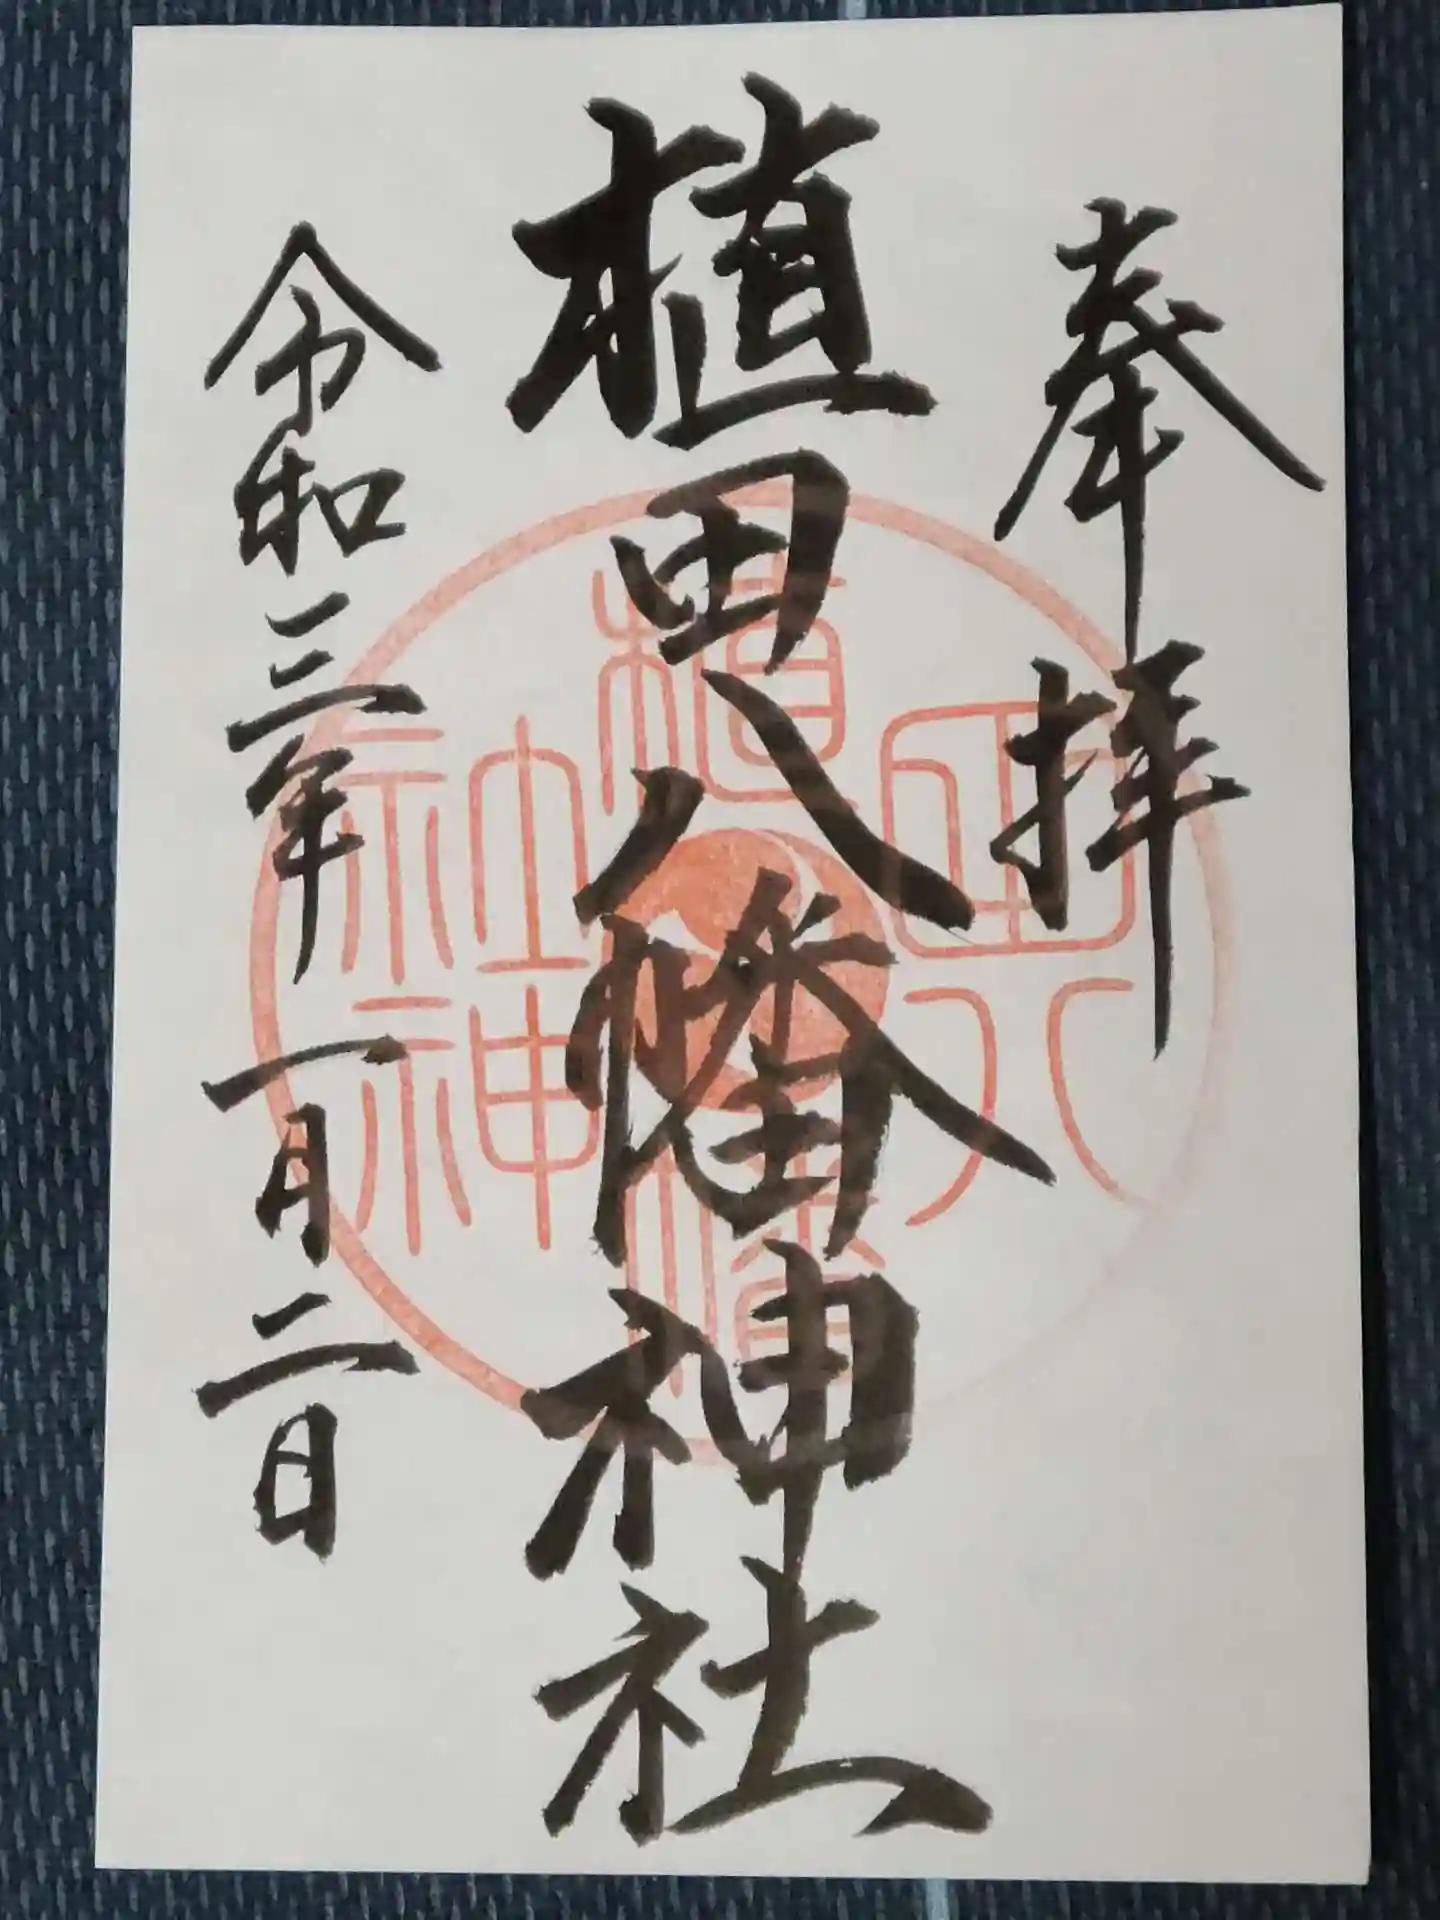 奉拝
植田八幡神社
令和三年一月二日
植田八幡神社